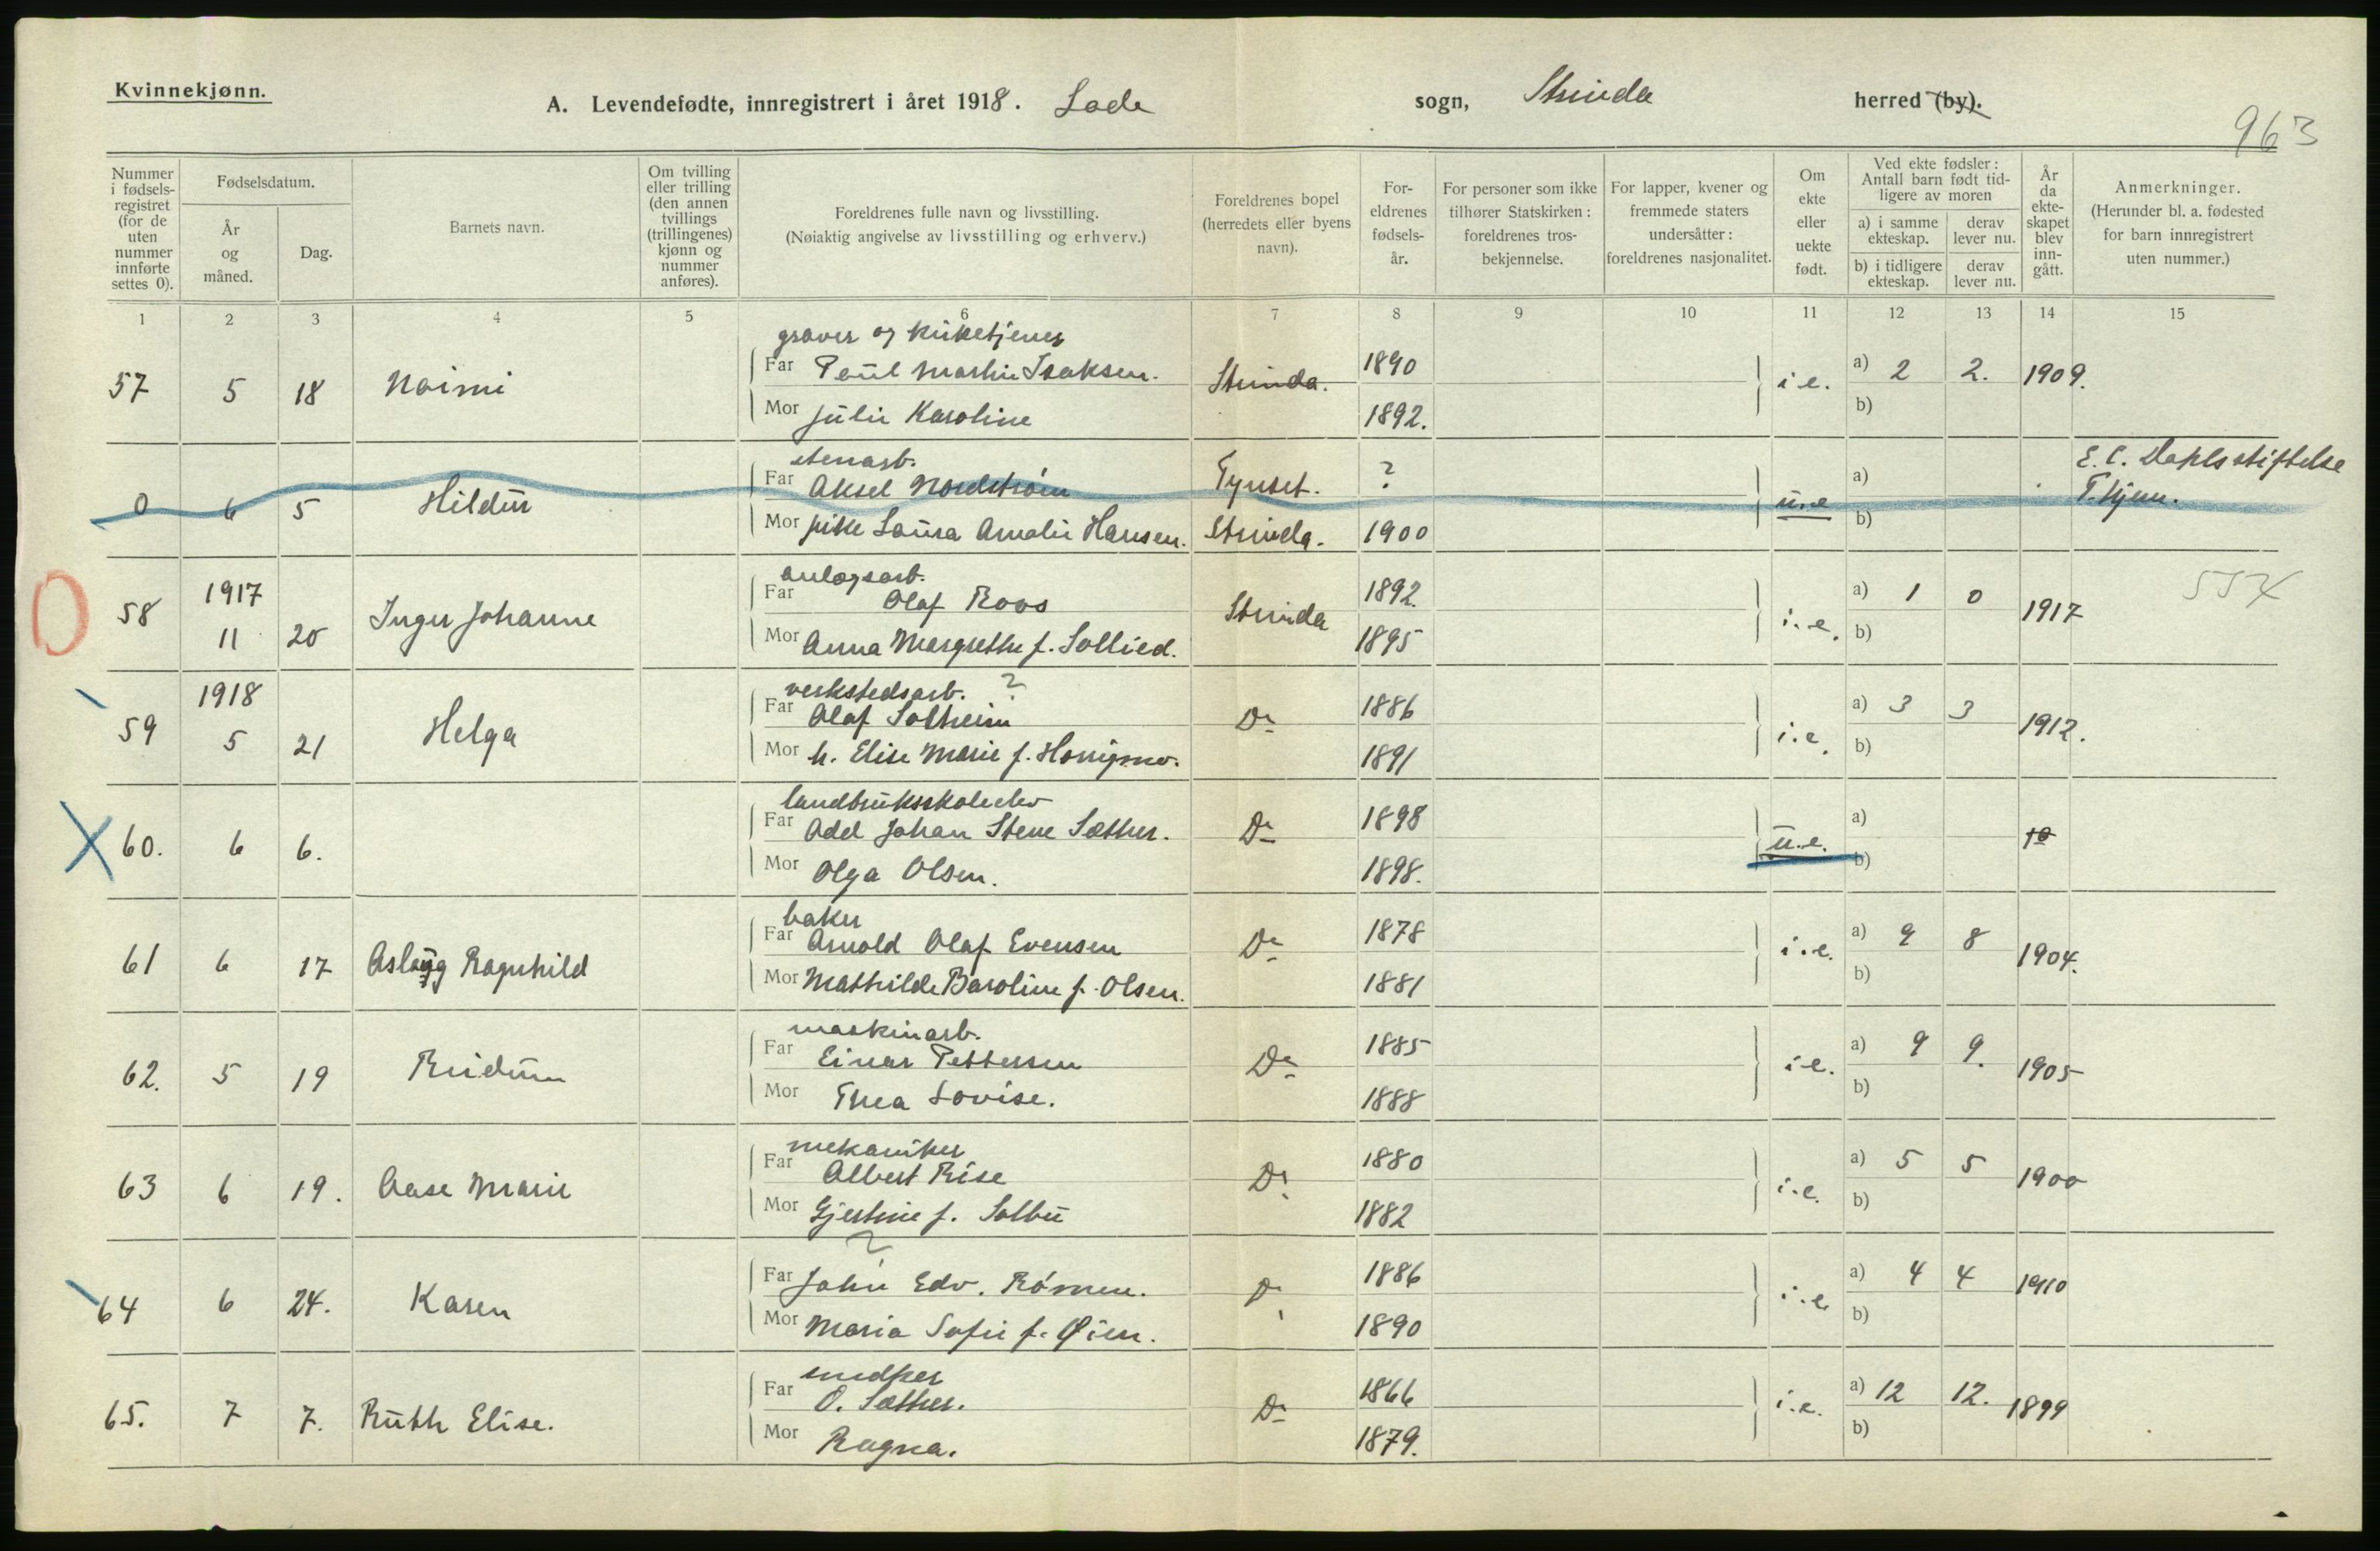 Kvinnekjønn.
A. Levendefødte, innregistrert i året 1918. Lade sogn, Strinda herred (by).
963
Nummer i fødselsregistret (for de uten nummer innførte settes 0).
Fødselsdatum.
År og måned.
Dag.
Barnets navn.
Om tvilling eller trilling (den annen tvillings (trillingenes) kjønn og nummer anføres).
Foreldrenes fulle navn og livsstilling.
(Nøiaktig angivelse av livsstilling og erhverv.)
Foreldrenes bopel (herredets eller byens navn).
Foreldrenes fødselsår.
For personer som ikke tilhører Statskirken: foreldrenes trosbekjennelse.
For lapper, kvener og fremmede staters undersåtter: foreldrenes nasjonalitet.
Om ekte eller uekte født.
Ved ekte fødsler: Antall barn født tidligere av moren
a) i samme ekteskap.
derav lever nu.
b) i tidligere ekteskap.
derav lever nu.
År da ekteskapet blev inngått.
Anmerkninger.
(Herunder bl. a. fødested for barn innregistrert uten nummer.)
1 2 3 4 5 6 7 8 9 10 11 12 13 14 15
graver og kirketjener
57 5 18 Noimi Far Paul Martin Isaksen. Strinda. 1890 i.e. a) 2 2. 1909.
Mor Julie Karoline 1892. b)
stenarb.
0 6 5 Hildur Far Aksel Nordstrøm Tynset. ? u.e. a) E. C. Dahls stiftelse
T.hjem.
Mor pike Laura Amalie Hansen. Strinda. 1900 b)
anlegsarb.
58 1917 11 20 Inger Johanne Far Olaf Roos Strinda 1892. i.e. a) 1 0 1917
Mor Anna Margrethe f. Sollied. 1895 b)
verkstedsarb. ?
59 1918 5 21 Helga Far Olaf Solheim Do 1886 i.e. a) 3 3 1912.
Mor h. Elise Marie f. 1891 b)
landbruksskoleelev
60. 6 6. Far Adel Johan Stene Sæther. Do 1898 u.e. a) 19
Mor Olga Olsen. 1898. b)
baker
61 6 17 Aslaug Ragnhild Far Arnold Olaf Evensen Do 1878 i.e. a) 9 8 1904.
Mor Mathilde Baroline f. Olsen. 1881 b)
maskinarb.
62. 5 19 Reidun Far Einar Pettersen Do 1885 i.e. a) 9 9. 1905
Mor Thea Lovise. 1888 b)
mekaniker
63 6 19. Aase Marie Far Albert Rise Do 1880 i.e. a) 5 5 1900
Mor Gjertine f. Solbu 1882 b)
?
64 6 24. Karen Far John Edv. Rømen. Do 1886 i.e. a) 4 4 1910
Mor Maria Sofie f. Øien. 1890 b)
snedker
65. 7 7. Ruth Elise. Far O. Sæther. Do 1866 i.e. a) 12 12. 1899
Mor Ragna. 1879. b)